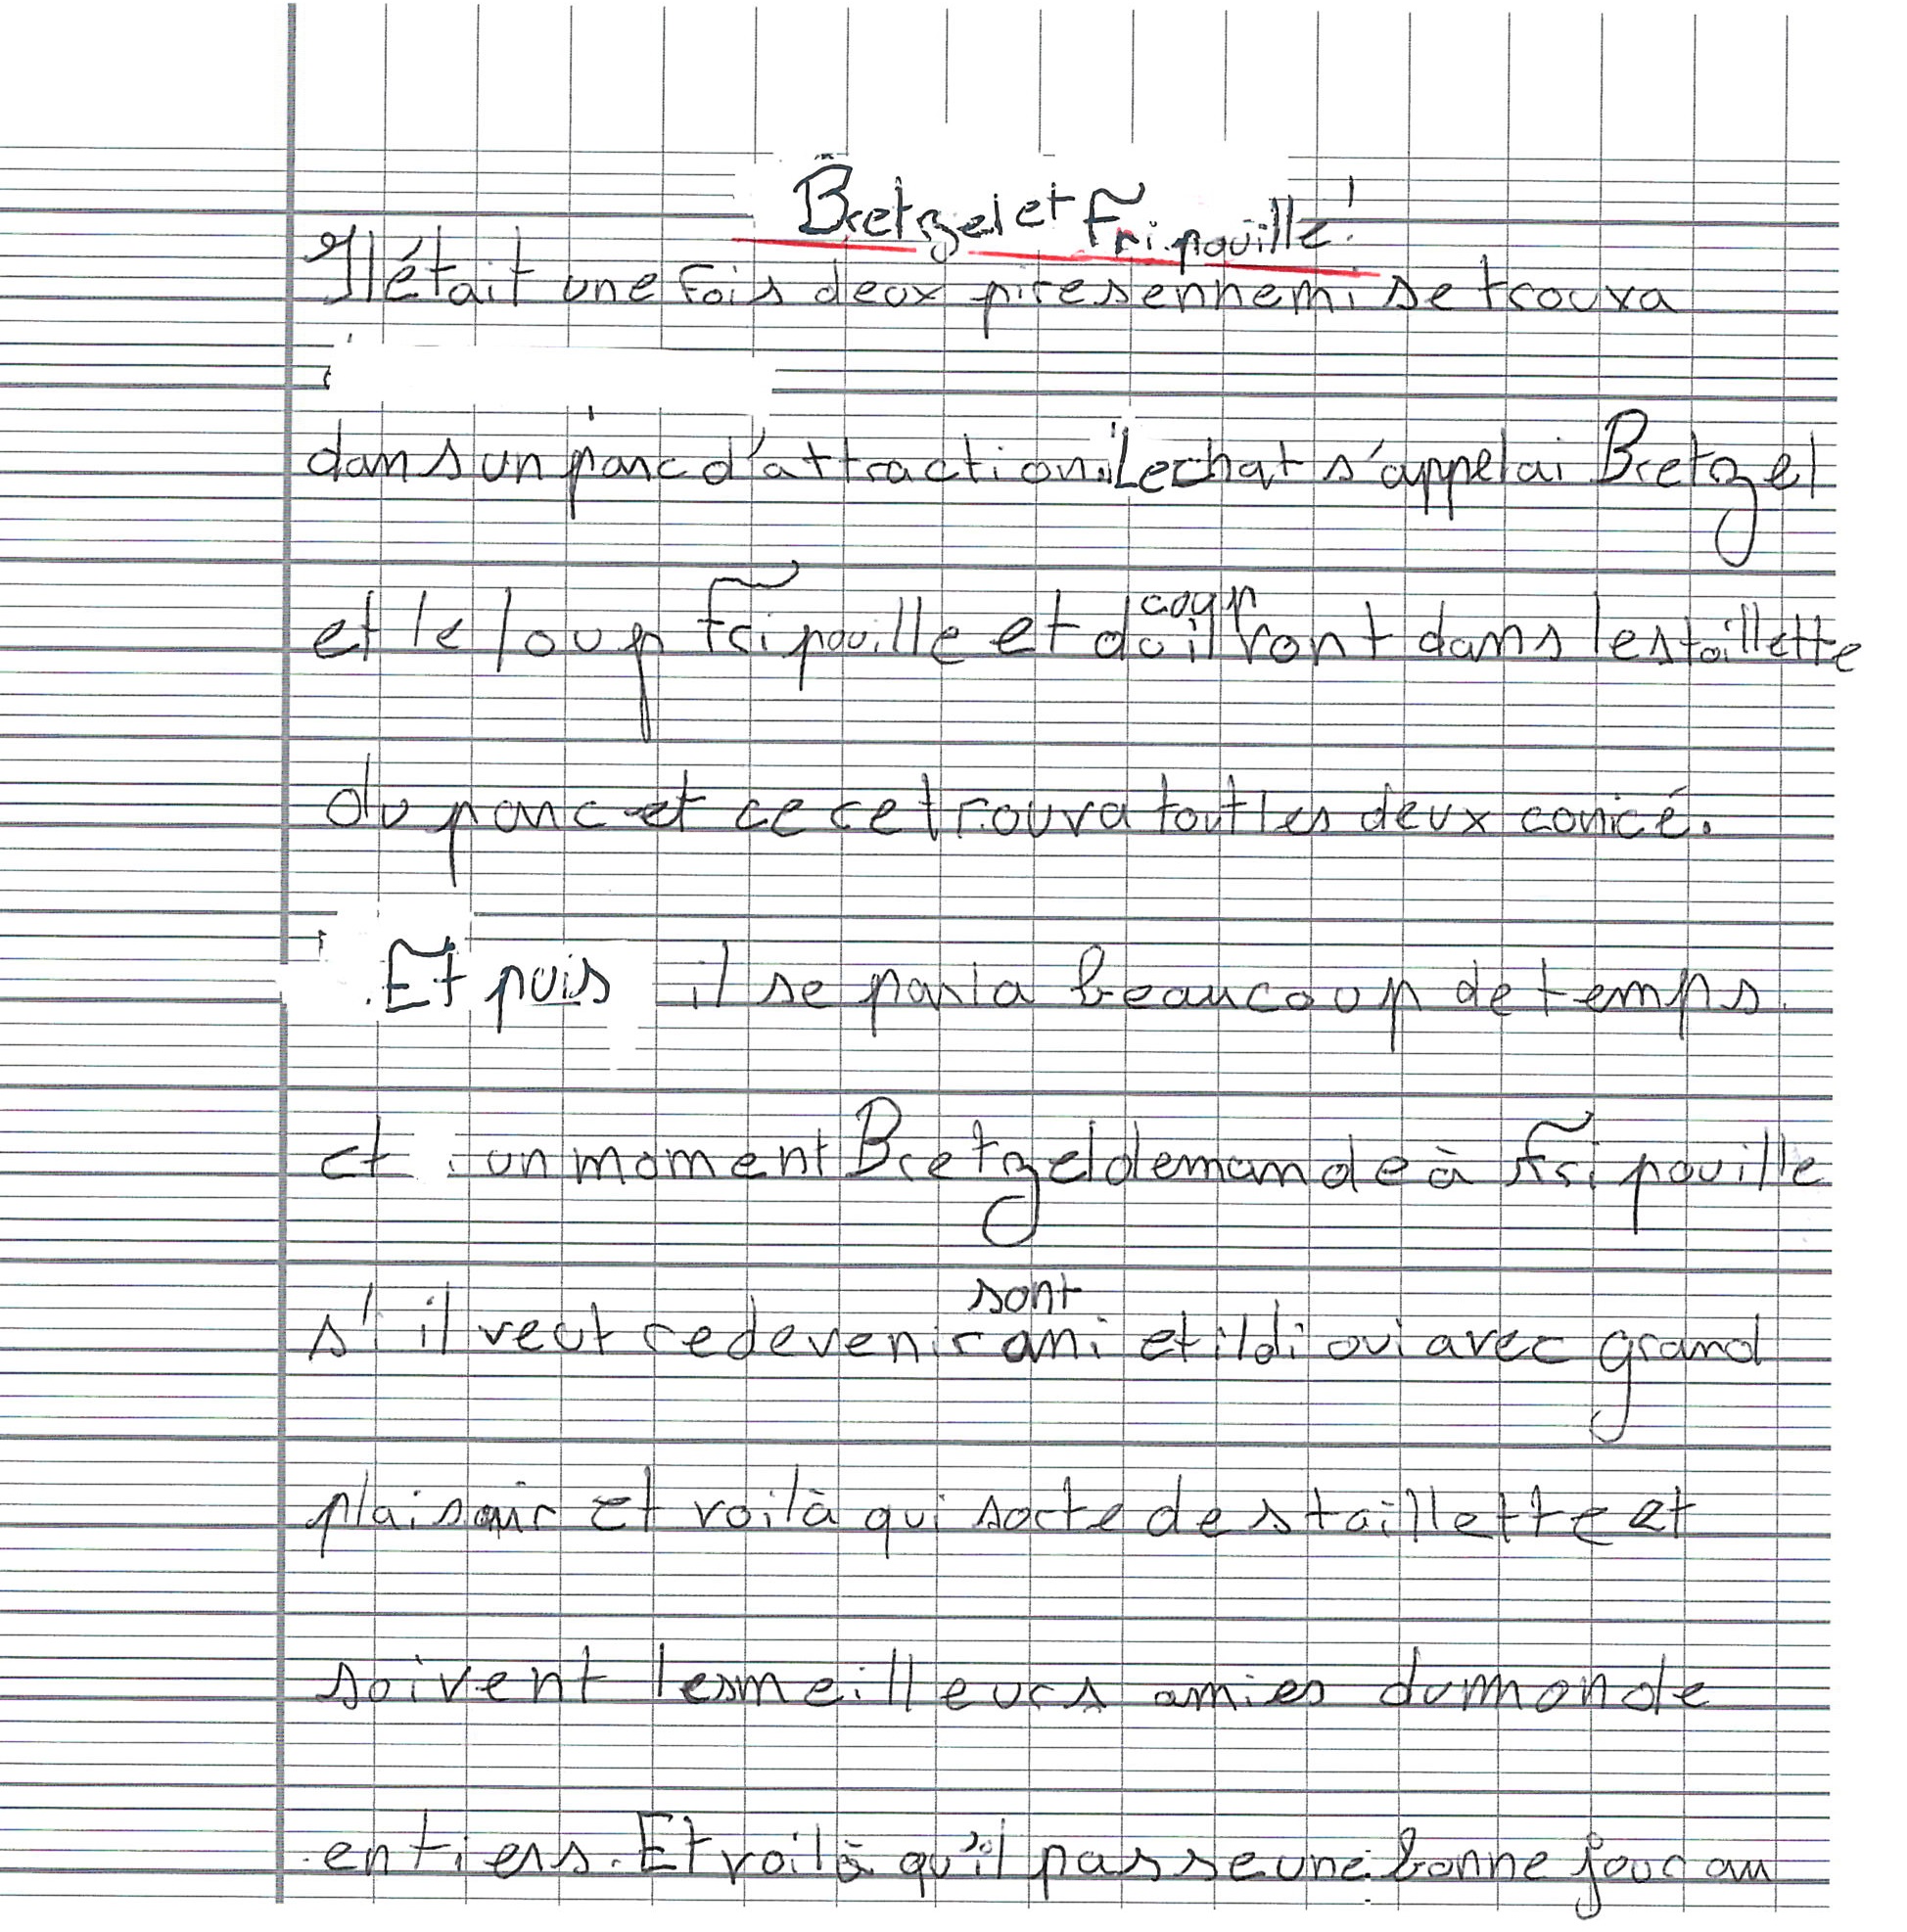 Bretzel et Fripouille !
Il était une fois deux pires ennemi se trouva
dans un parc d'attraction. Le chat s'appelai Bretzel
et le loup Fripouille et du coup il vont dans les toillette
du parc et ce cetrouva tout les deux conicé.
Et puis il se parla beaucoup de temps.
et un moment Bretzel demande à Fripouille
sont
s'il veut redevenir ami et il di oui avec grand
plaisair et voilà qui sorte des taillette et
soivent les meilleurs amies du monde
entiers. Et voilà qu'il passe une bonne jour au